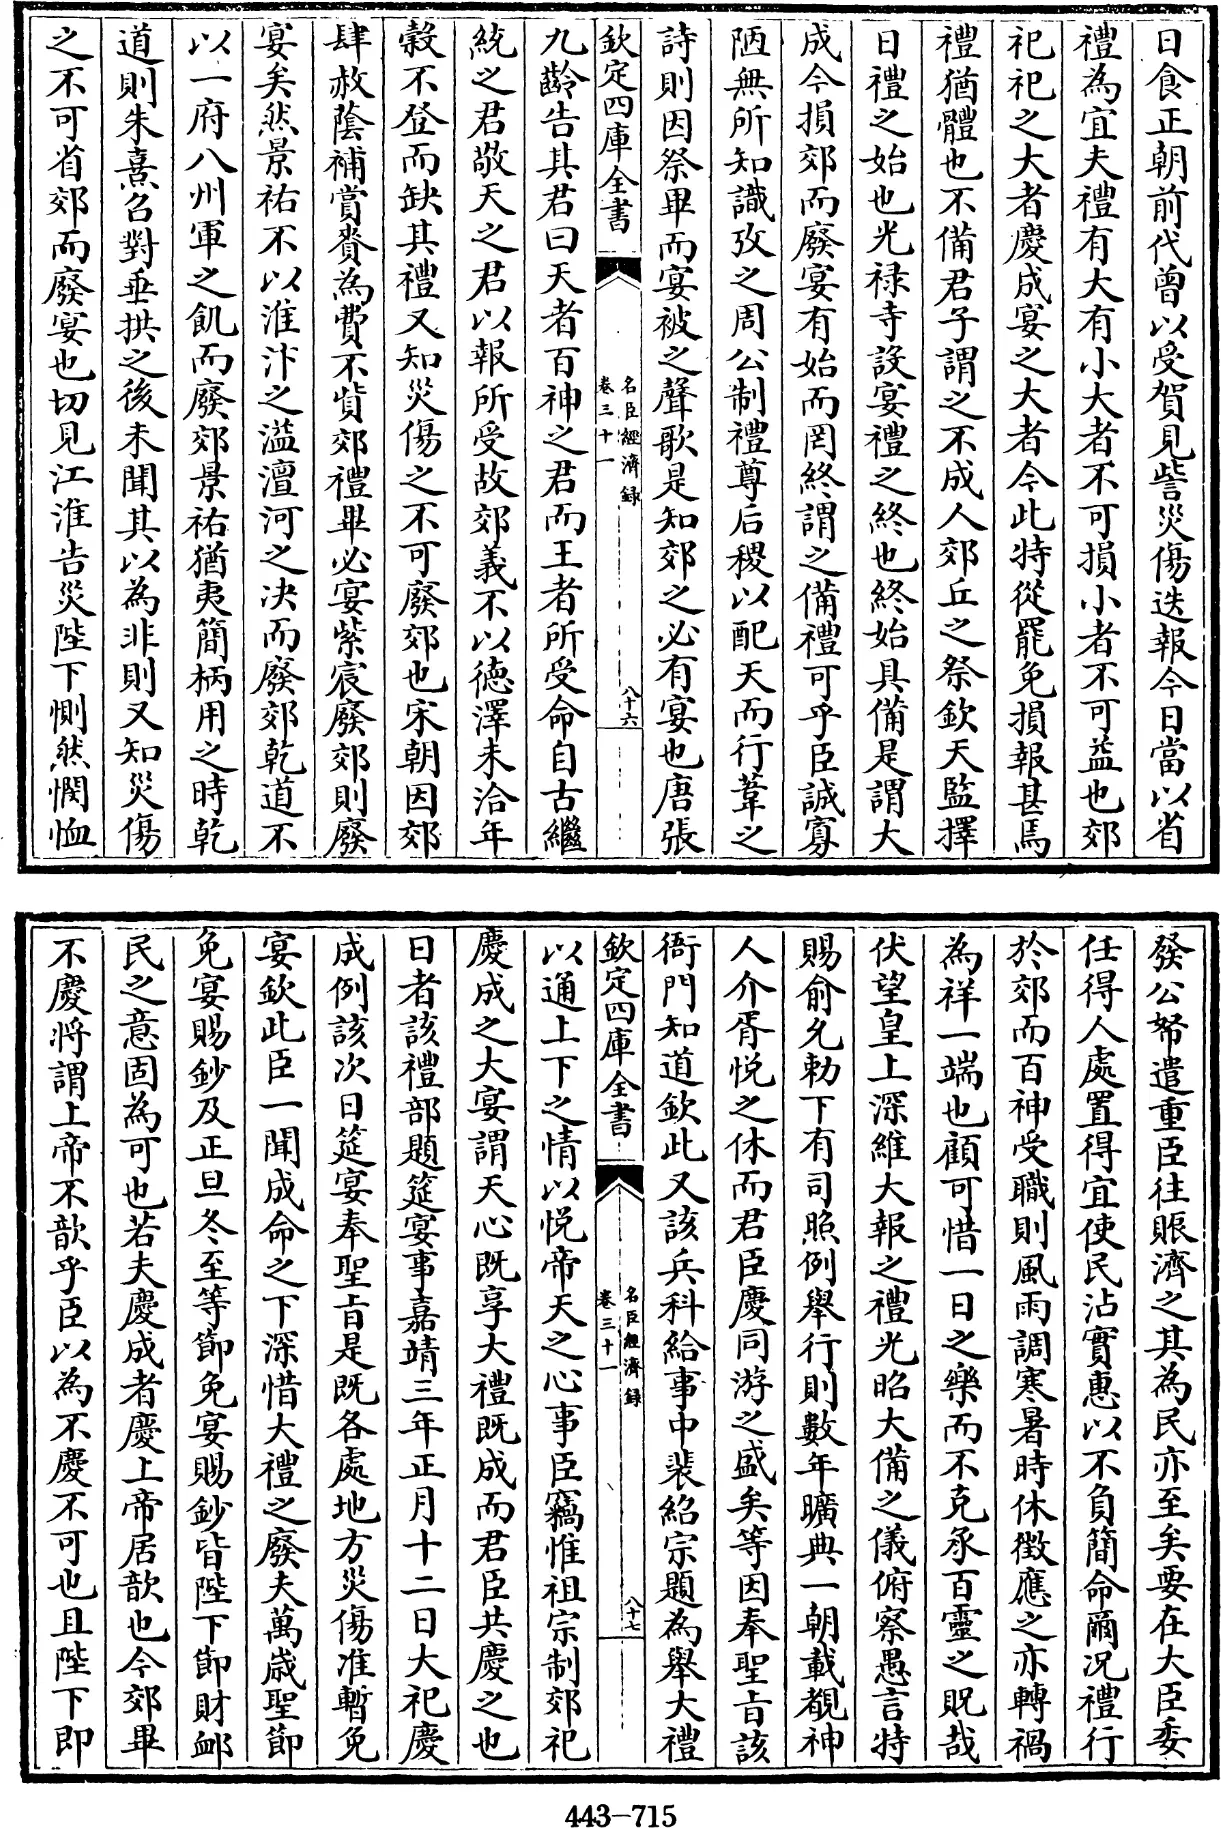 日食正朝前代曾以受賀見訾災傷迭報今日當以省
禮為宜夫禮有大有小大者不可損小者不可益也郊
祀祀之大者慶成宴之大者今此特從罷免損報甚焉
禮猶體也不備君子謂之不成人郊丘之祭欽天監擇
日禮之始也光禄寺設宴禮之終也終始具備是謂大
成今損郊而廢宴有始而罔終謂之備禮可乎臣誠寡
陋無所知識攷之周公制禮尊后稷以配天而行葦之
詩則因祭畢而宴被之聲歌是知郊之必有宴也唐張
欽定四庫全書
名臣經濟録
卷三十一
八十六
九齡告其君曰天者百神之君而王者所受命自古繼
統之君敬天之君以報所受故郊義不以德澤未洽年
穀不登而缺其禮又知災傷之不可廢郊也宋朝因郊
肆赦蔭補賞賚為費不貲郊禮畢必宴紫宸廢郊則廢
宴矣然景祐不以淮汴之溢澶河之决而廢郊乾道不
以一府八州軍之飢而廢郊景祐猶夷簡柄用之時乾
道則朱熹召對垂拱之後未聞其以為非則又知災傷
之不可省郊而廢宴也切見江淮告災陛下惻然憫恤
發公帑遣重臣往賑濟之其為民亦至矣要在大臣委
任得人處置得宜使民沾實惠以不負簡命爾况禮行
於郊而百神受職則風雨調寒暑時休徵應之亦轉禍
為祥一端也顧可惜一日之樂而不克承百靈之貺哉
伏望皇上深維大報之禮光昭大備之儀俯察愚言特
賜俞允勅下有司照例舉行則數年曠典一朝載覩神
人介胥悦之休而君臣慶同游之盛矣等因奉聖旨該
衙門知道欽此又該兵科給事中裴紹宗題為舉大禮
欽定四庫全書
名臣經濟録
卷三十一
八十七
以通上下之情以悦帝天之心事臣竊惟祖宗制郊祀
慶成之大宴謂天心既享大禮既成而君臣共慶之也
日者該禮部題筵宴事嘉靖三年正月十二日大祀慶
成例該次日筵宴奉聖旨是既各處地方災傷准暫免
宴欽此臣一聞成命之下深惜大禮之廢夫萬歲聖節
免宴賜鈔及正旦冬至等節免宴賜鈔皆陛下節財䘏
民之意固為可也若夫慶成者慶上帝居歆也今郊畢
不慶將謂上帝不歆乎臣以為不慶不可也且陛下即
443-715